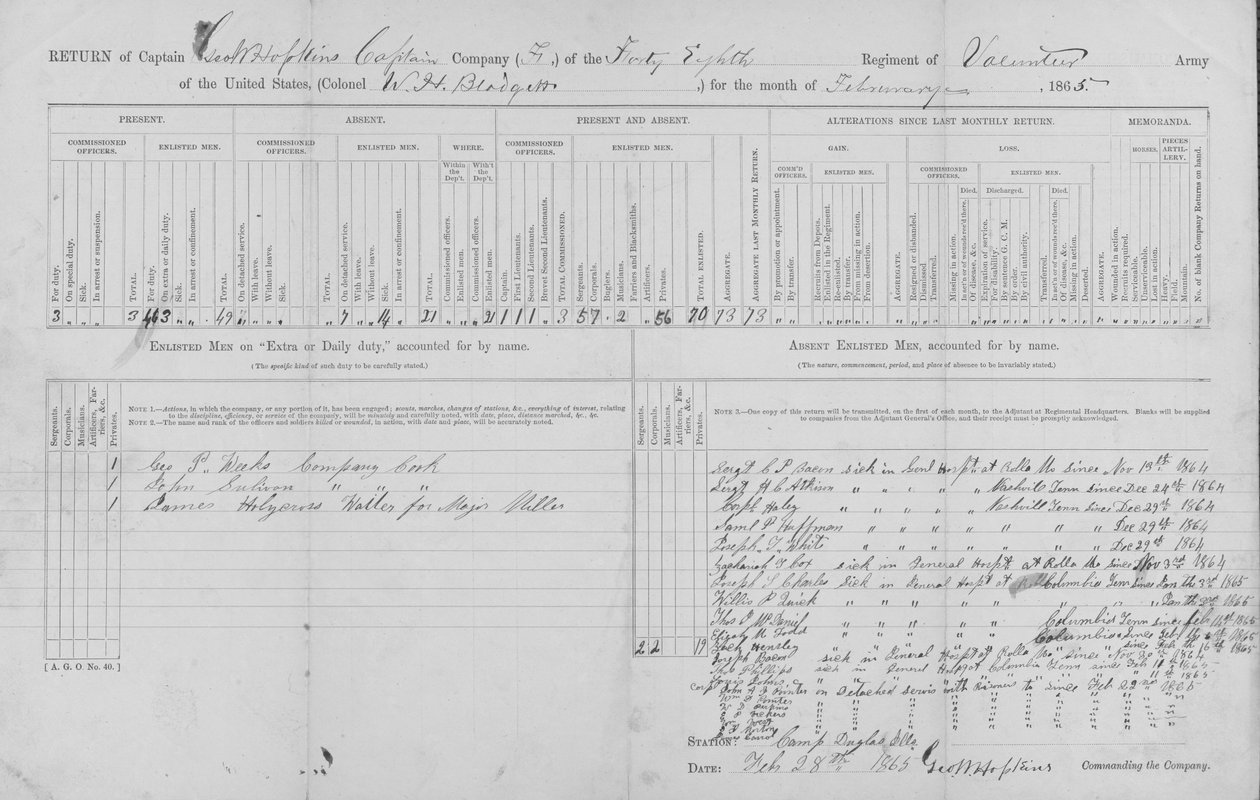 RETURN of Captain Geo W Hopkins Captain Company (F,) of the Forty Eighth Regiment of Volunteer Army
of the United States, (Colonel W. H. Blodgett ,) for the month of Februwary , 1865.
PRESENT. ABSENT. PRESENT AND ABSENT. ALTERATIONS SINCE LAST MONTHLY RETURN. MEMORANDA.
COMMISSIONED OFFICERS. ENLISTED MEN. COMMISSIONED OFFICERS. ENLISTED MEN. WHERE. COMMISSIONED OFFICERS. ENLISTED MEN. GAIN. LOSS. HORSES. PIECES ARTILLERY.
Within the Dep't. With't the Dep't. COMM'D OFFICERS. ENLISTED MEN. COMMISSIONED OFFICERS. ENLISTED MEN.
Died. Discharged. Died.
For duty. On special duty. Sick. In arrest or suspension. TOTAL. For duty. On extra or daily duty. Sick. In arrest or confinement. TOTAL. On detached service. With leave. Without leave. Sick. TOTAL. On detached service. With leave. Without leave. Sick. In arrest or confinement. TOTAL. Commissioned officers. Enlisted men. Commissioned officers. Enlisted men. Captain. First Lieutenants. Second Lieutenants. Brevet Second Lieutenants. TOTAL COMMISSIONED. Sergeants. Corporals. Buglers. Musicians. Farriers and Blacksmiths. Artificers. Privates. TOTAL ENLISTED. AGGREGATE. AGGREGATE LAST MONTHLY RETURN. By promotion or appointment. By transfer. Recruits from Depots. Enlisted in the Regiment. Re-enlisted. By transfer. From missing in action. From desertion. AGGREGATE. Resigned or disbanded. Transferred. Missing in action. In act'n or of wounds rec'd there. Of disease, &c. Expiration of service. For disability. By sentence G. C. M. By order. By civil authority. Transferred. In act'n or of wounds rec'd there. Of disease, &c. Missing in action. Deserted. AGGREGATE. Wounded in action. Recruits required. Serviceable. Unserviceable. Lost in action. Heavy. Field. Mountain. No. of blank Company Returns on hand.
3 " " " 3 46 3 " " 49 " " " " " 7 " " 14 " 21 " " " 21 1 1 1 " 3 5 7 " 2 " " 56 70 73 73
ENLISTED MEN on "Extra or Daily duty," accounted for by name.
(The specific kind of such duty to be carefully stated.)
Sergeants. Corporals. Musicians. Artificers, Farriers, &c. Privates.
NOTE 1.—Actions, in which the company, or any portion of it, has been engaged; scouts, marches, changes of stations, &c., everything of interest, relating
to the discipline, efficiency, or service of the company, will be minutely and carefully noted, with date, place, distance marched, &c., &c.
NOTE 2.—The name and rank of the officers and soldiers killed or wounded, in action, with date and place, will be accurately noted.
1 Geo P. Weeks Company Cook
1 John Sulivon " " "
1 James Holycross Waiter for Major Miller
[A. G. O. No. 40.]
ABSENT ENLISTED MEN, accounted for by name.
(The nature, commencement, period, and place of absence to be invariably stated.)
Sergeants. Corporals. Musicians. Artificers, Farriers, &c. Privates.
NOTE 3.—One copy of this return will be transmitted, on the first of each month, to the Adjutant at Regimental Headquarters. Blanks will be supplied
to companies from the Adjutant General's Office, and their receipt must be promptly acknowledged.
Sergt C P Bacon sick in Genl Hospt at Rolla Mo since Nov 13th 1864
Sergt H C Atkison " " " " Nashvill Tenn since Dec 24th 1864
Corpl Haley " " " " Nashvill Tenn since Dec 29th 1864
Saml P Huffman " " " " " " " Dec 29th 1864
Joseph T White " " " " " " " Dec 29th 1864
Zachariah T Cox sick in General Hospt at Rolla Mo since Nov 3rd 1864
Joseph S Charles Sick in General Hospt at Columbia Tenn since Jan th 3rd 1865
Willis P Quick " " " " " " " Jan th 3rd 1865
Thos P McDaniel " " " " " Columbia Tenn since Feb 14th 1865
Todd " " " " " Columbia " Since Feb 1865
2 2 19 Hensley " " " " " " " since Feb th 16th 1865
Joseph Bacon sick in General Hospt at Rolla Mo since Nov 30th 1864
Thos Phillips sick in General Hospt at Columbia Tenn since Feb 1865
Louis Johns " " " " " " " " 1865
Corp John A J Pointer on Detached servis with Prisoners to since Feb 22nd 1865
Wm Pointer " " " " " " " "
" " " " " " " "
" " " " " " " "
West " " " " " " " "
Norton " " " " " " " "
STATION: Camp Duglas Ills
DATE: Feb 28th 1865 Geo. W. Hopkins Commanding the Company.